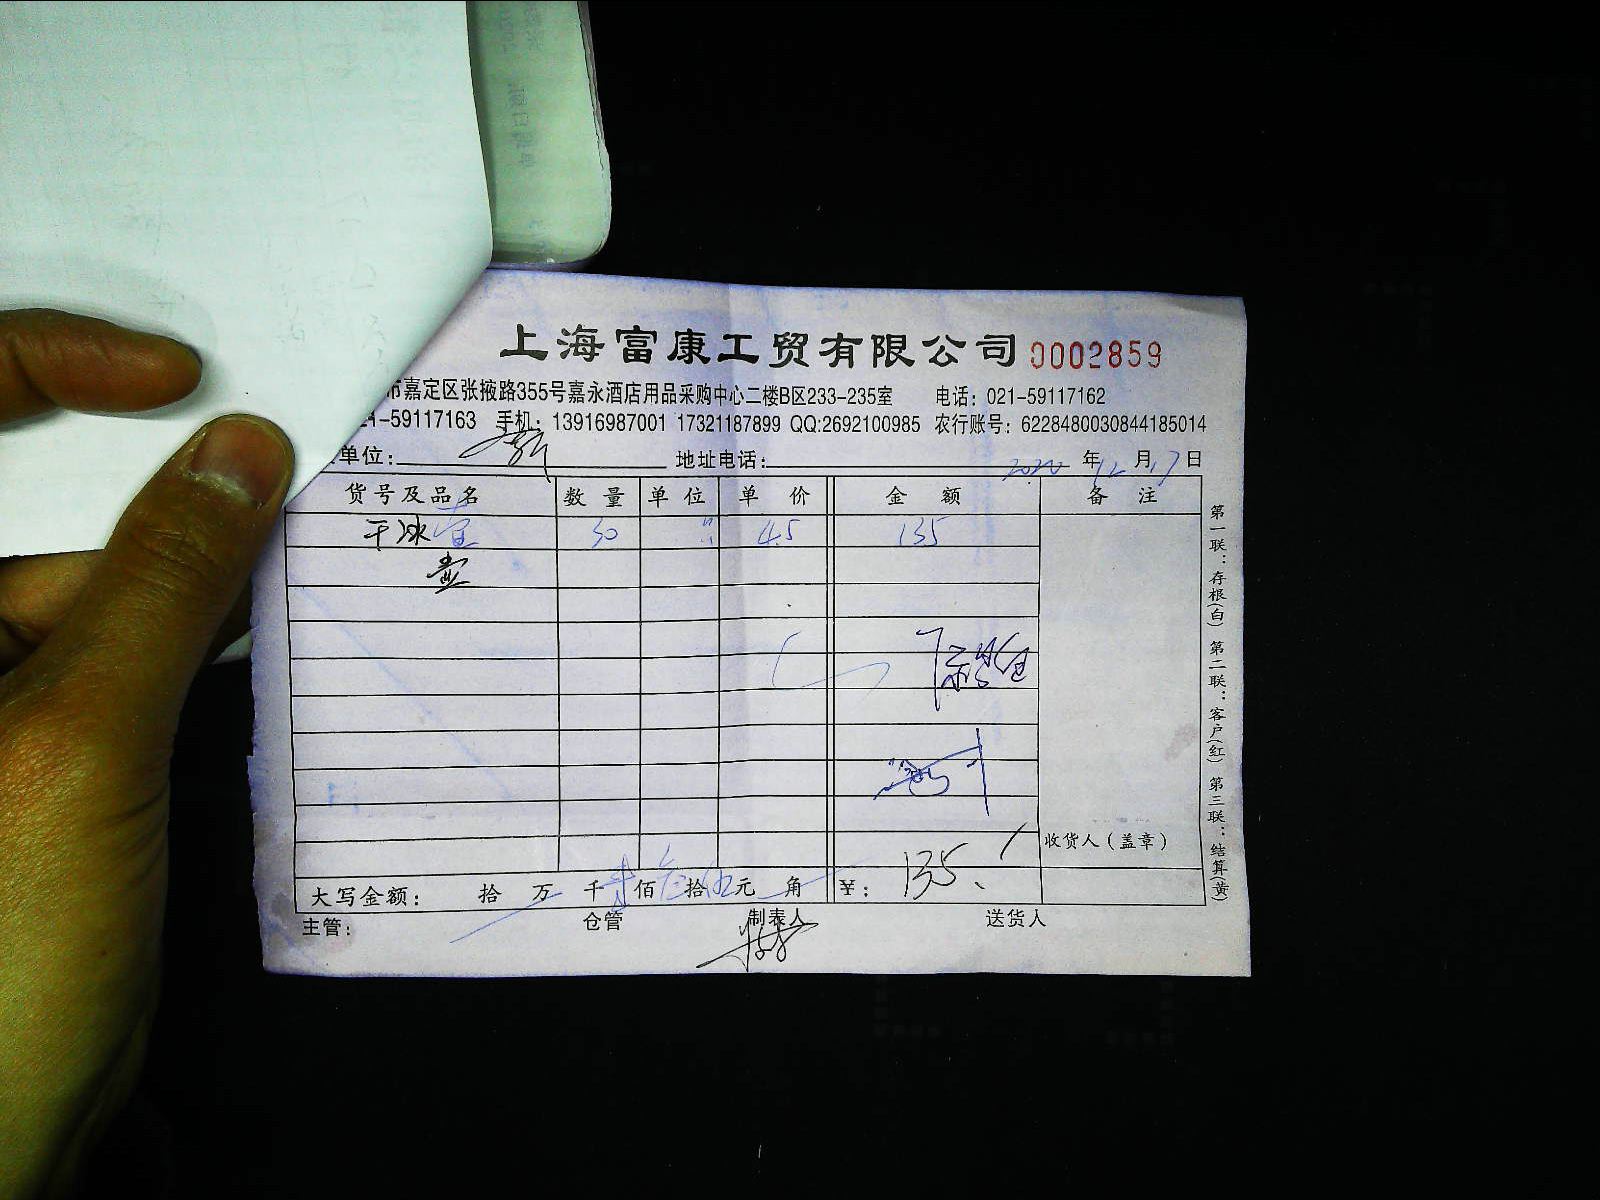 上海富康工贸有限公司 0002859
市嘉定区张掖路355号嘉永酒店用品采购中心二楼B区233-235室 电话：021-59117162
1-59117163 手机：13916987001 17321187899 QQ:2692100985 农行账号：6228480030844185014
单位： 地址电话： 2020年12月17日
货号及品名 数量 单位 单价 金额 备注
干冰壶 30 4.5 135
壶
收货人（盖章）
大写金额： 拾 万 千 壹佰 叁拾 伍元 角 ¥：135
主管： 仓管 制表人 送货人
第一联：存根(白) 第二联：客户(红) 第三联：结算(黄)